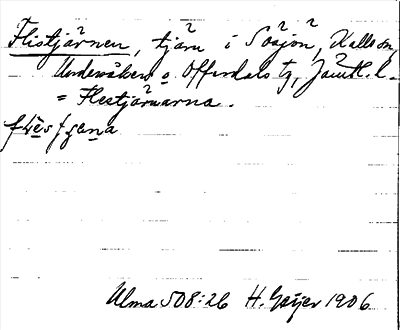 Flistjärnen, tjärn i Soåsjön, Kallsn,
Undersåkers o. Offerdals tg, Jämtl. l.
= Flestjärnarna.
Ulma 508:26 H. Geijer 1906